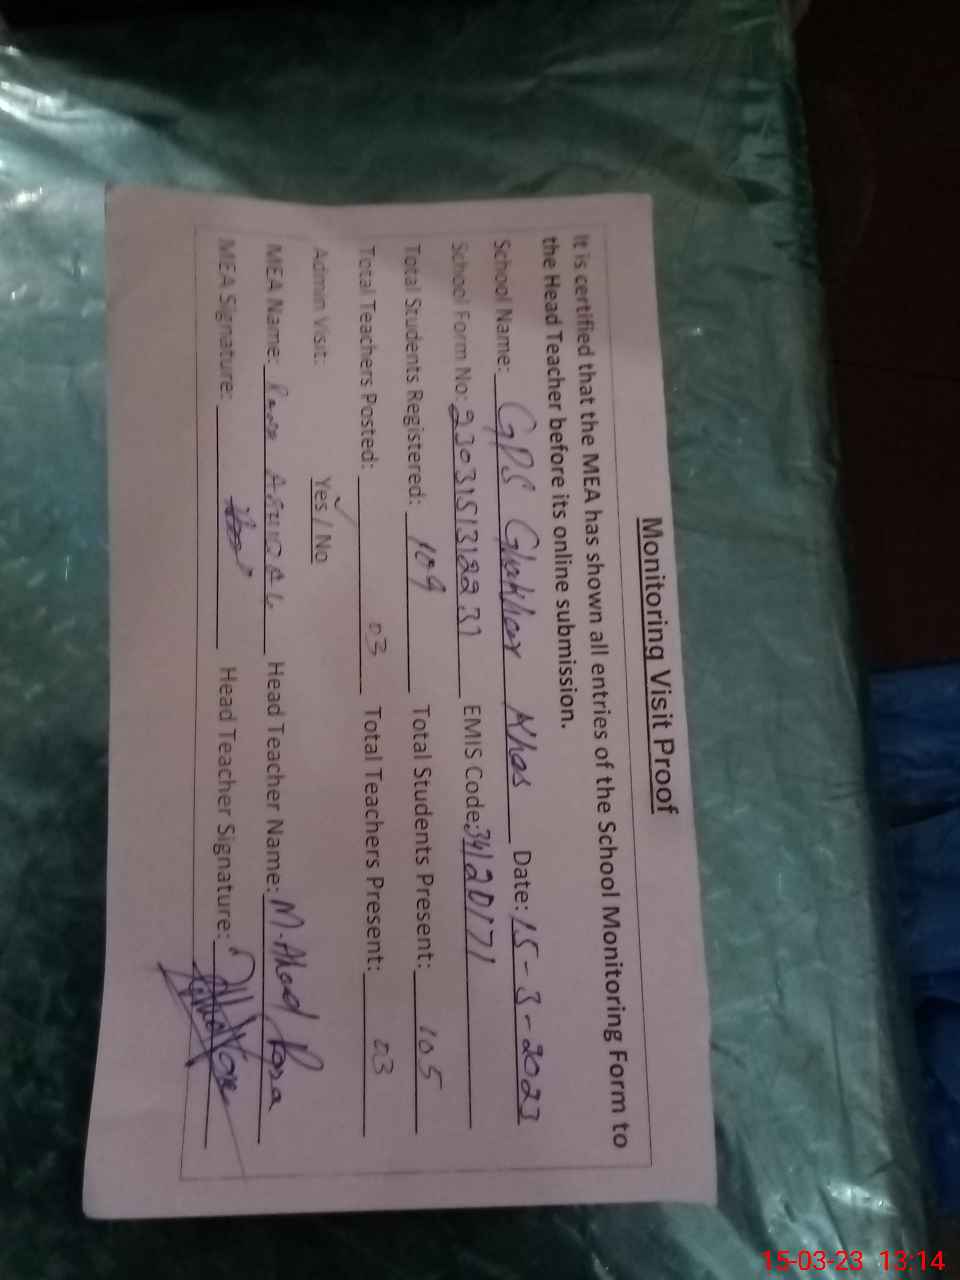 Monitoring Visit Proof
It is certified that the MEA has shown all entries of the School Monitoring Form to
the Head Teacher before its online submission.
School Name: GPS Ghakhar Khas Date: 15-3-2023
School Form No: EMIS Code: 34120171
Total Students Registered: 109 Total Students Present: 105
Total Teachers Posted: 03 Total Teachers Present: 03
Admin Visit: Yes / No
MEA Name: Head Teacher Name: M. Ahad Raza
MEA Signature: Head Teacher Signature:
15-03-23 13:14